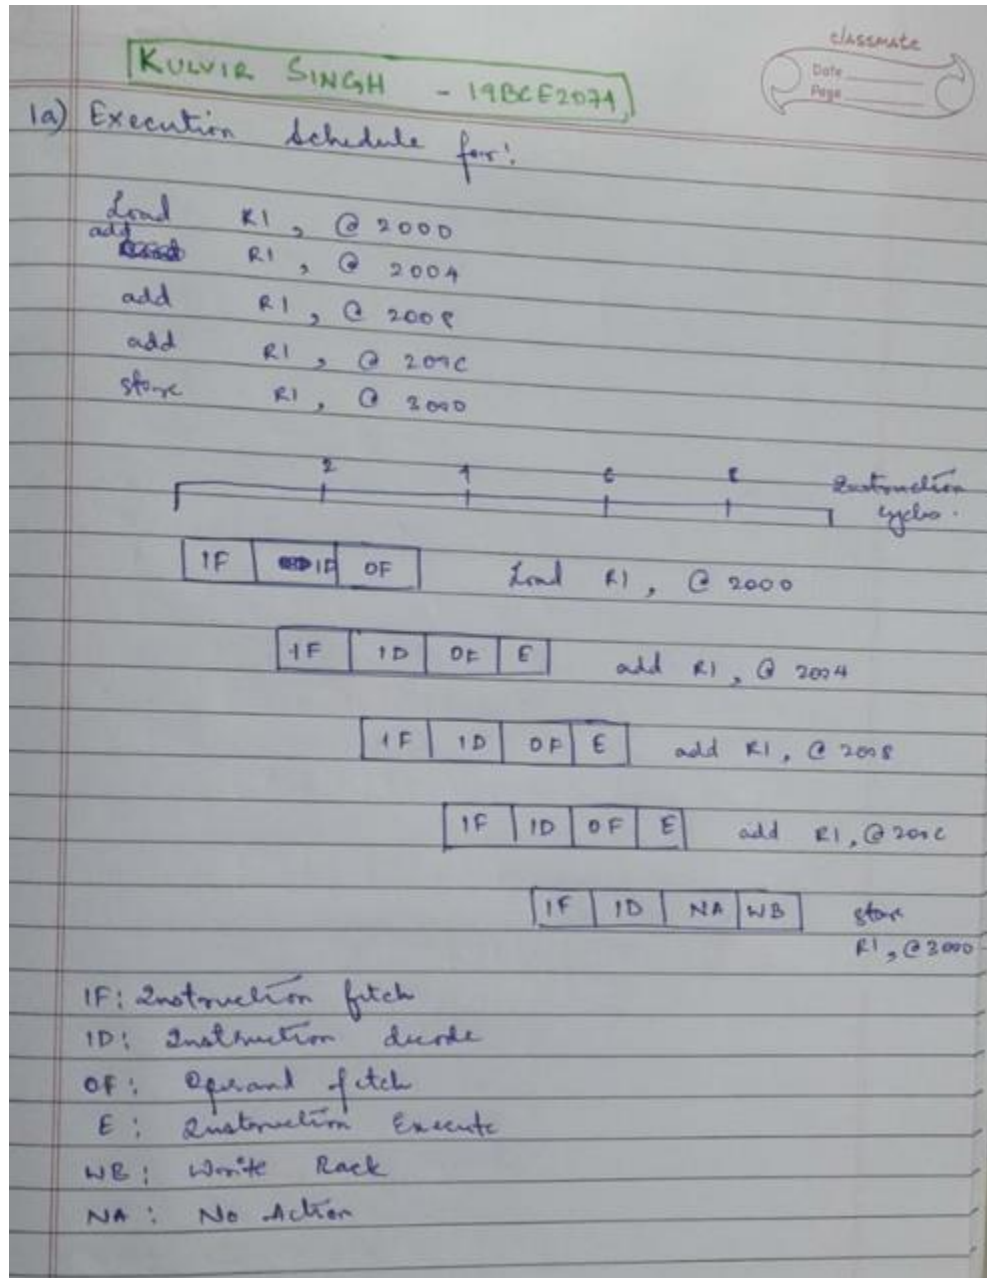 classmate
Date
Page
KULVIR SINGH - 19BCE2074
1a) Execution Schedule for:
Load R1, @ 2000
add R1, @ 2004
add R1, @ 2008
add R1, @ 200C
store R1, @ 3000
2 4 6 8 Instruction
cycles.
IF ID OF Load R1, @ 2000
IF ID OF E add R1, @ 2004
IF ID OF E add R1, @ 2008
IF ID OF E add R1, @ 200C
IF ID NA WB store
R1, @ 3000
IF: Instruction fetch
ID: Instruction decode
OF: Operand fetch
E: Instruction Execute
WB: Write Back
NA: No Action